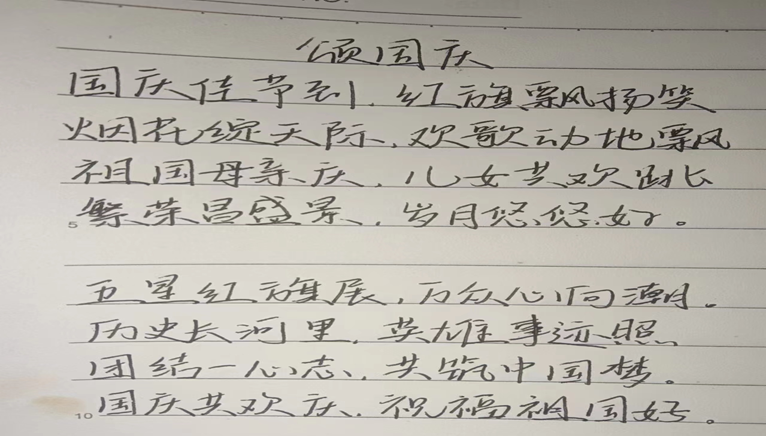 颂国庆
国庆佳节到,红旗飘扬笑
烟花绽天际,欢歌动地飘
祖国母亲庆,儿女共欢跳
繁荣昌盛景,岁月悠悠好。
五星红旗展,万众心向潮。
历史长河里,英雄事迹照
团结一心志,共筑中国梦。
国庆共欢庆,祝福祖国好。